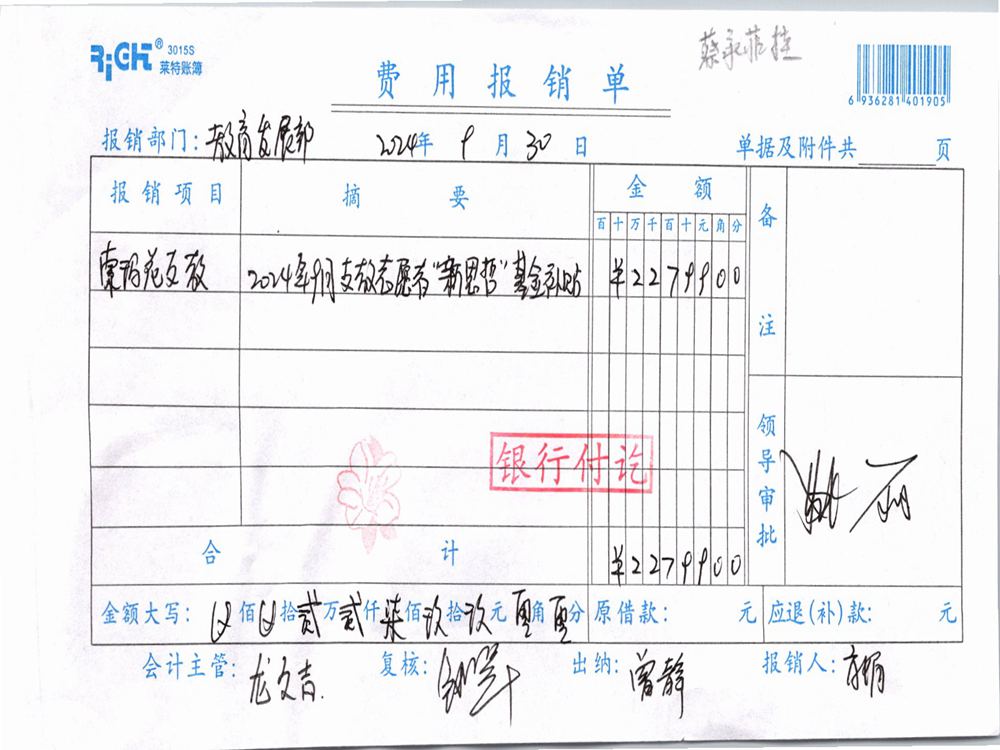 RiGHT® 3015S
莱特账簿
费用报销单
6 936281 401905
报销部门:教育发展部 2024年 9月 30日 单据及附件共 页
报销项目 摘要 金额 备注
百十万千百十元角分
支教 2024年9月支教志愿者“新思哲”基金补贴 ¥2279900
银行付讫
领导审批
合计 ¥2279900
金额大写: 佰 拾贰万贰仟柒佰玖拾玖元零角零分 原借款: 元 应退(补)款: 元
会计主管:龙文吉 复核: 出纳:曾静 报销人: